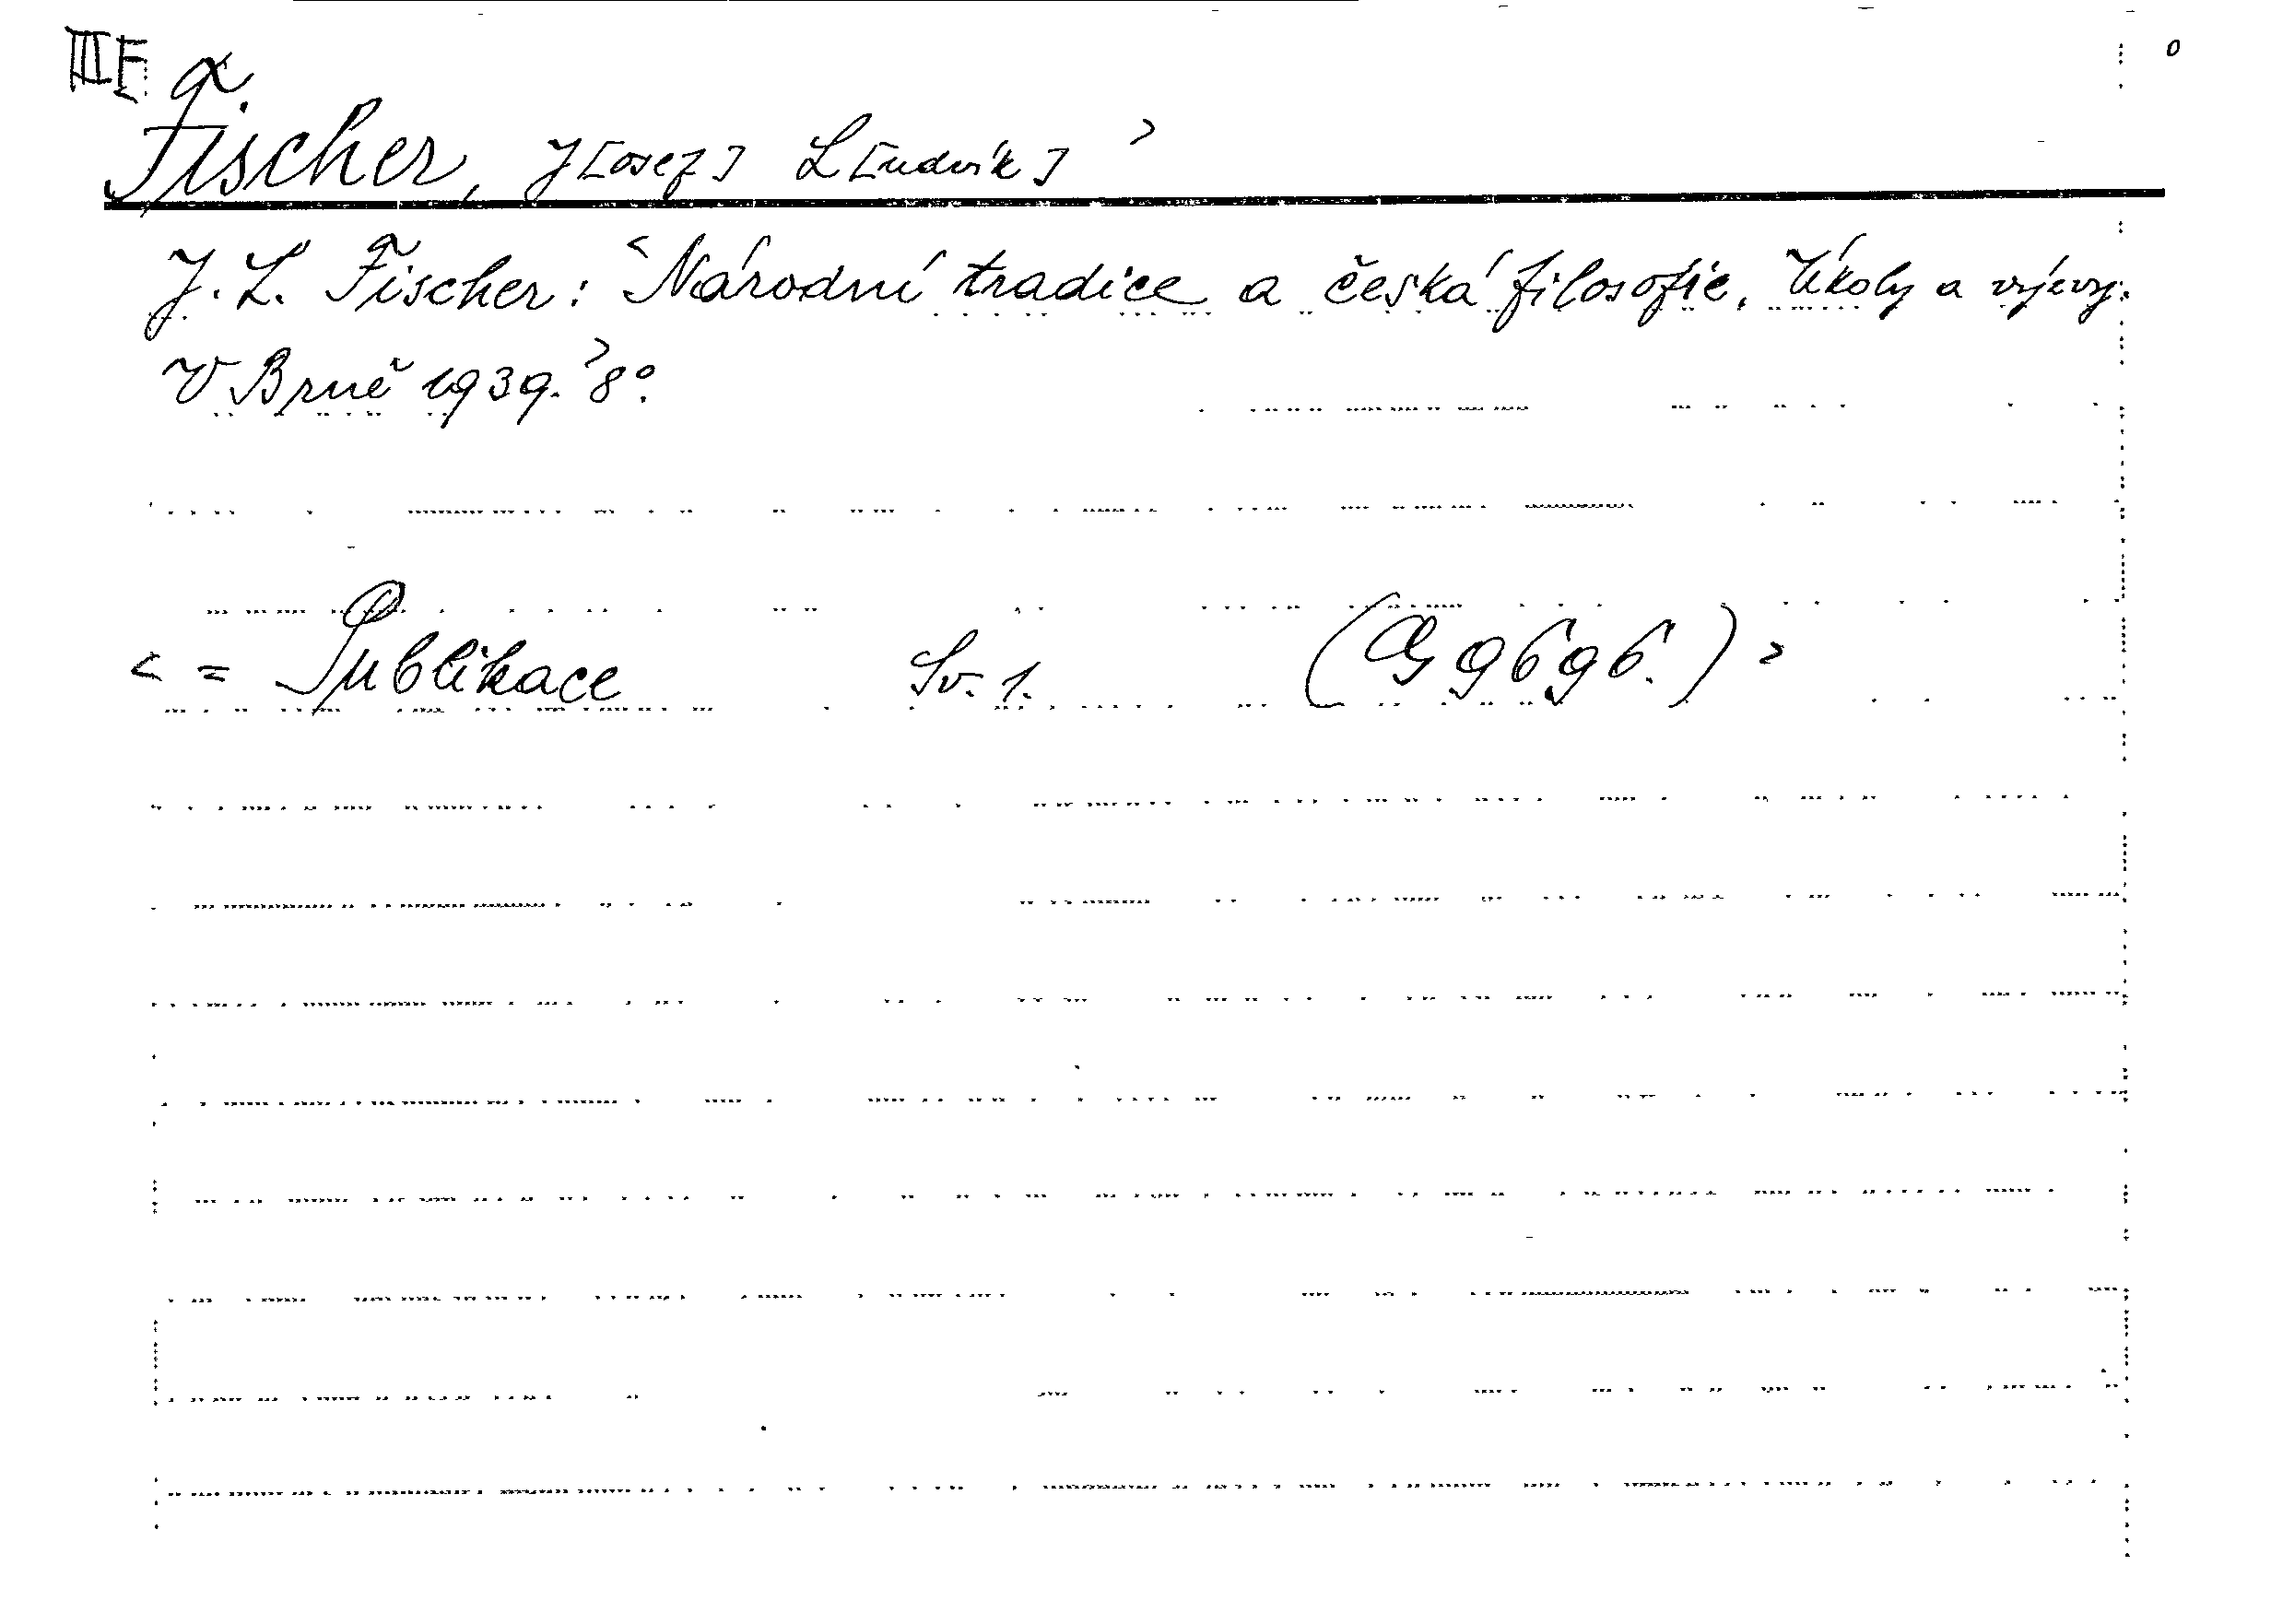 III E a
Fischer, J[osef] L[udvík] >
J. L. Fischer: <Národní tradice a česká filosofie. Úkoly a výzvy.
V Brně 1939.> 8°.
< = Publikace Sv. 1. (G 9696.) >